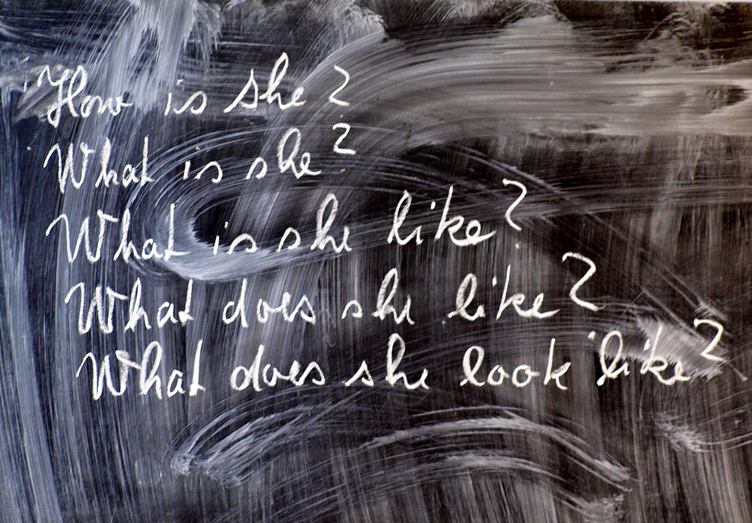 How is she?
What is she?
What is she like?
What does she like?
What does she look like?